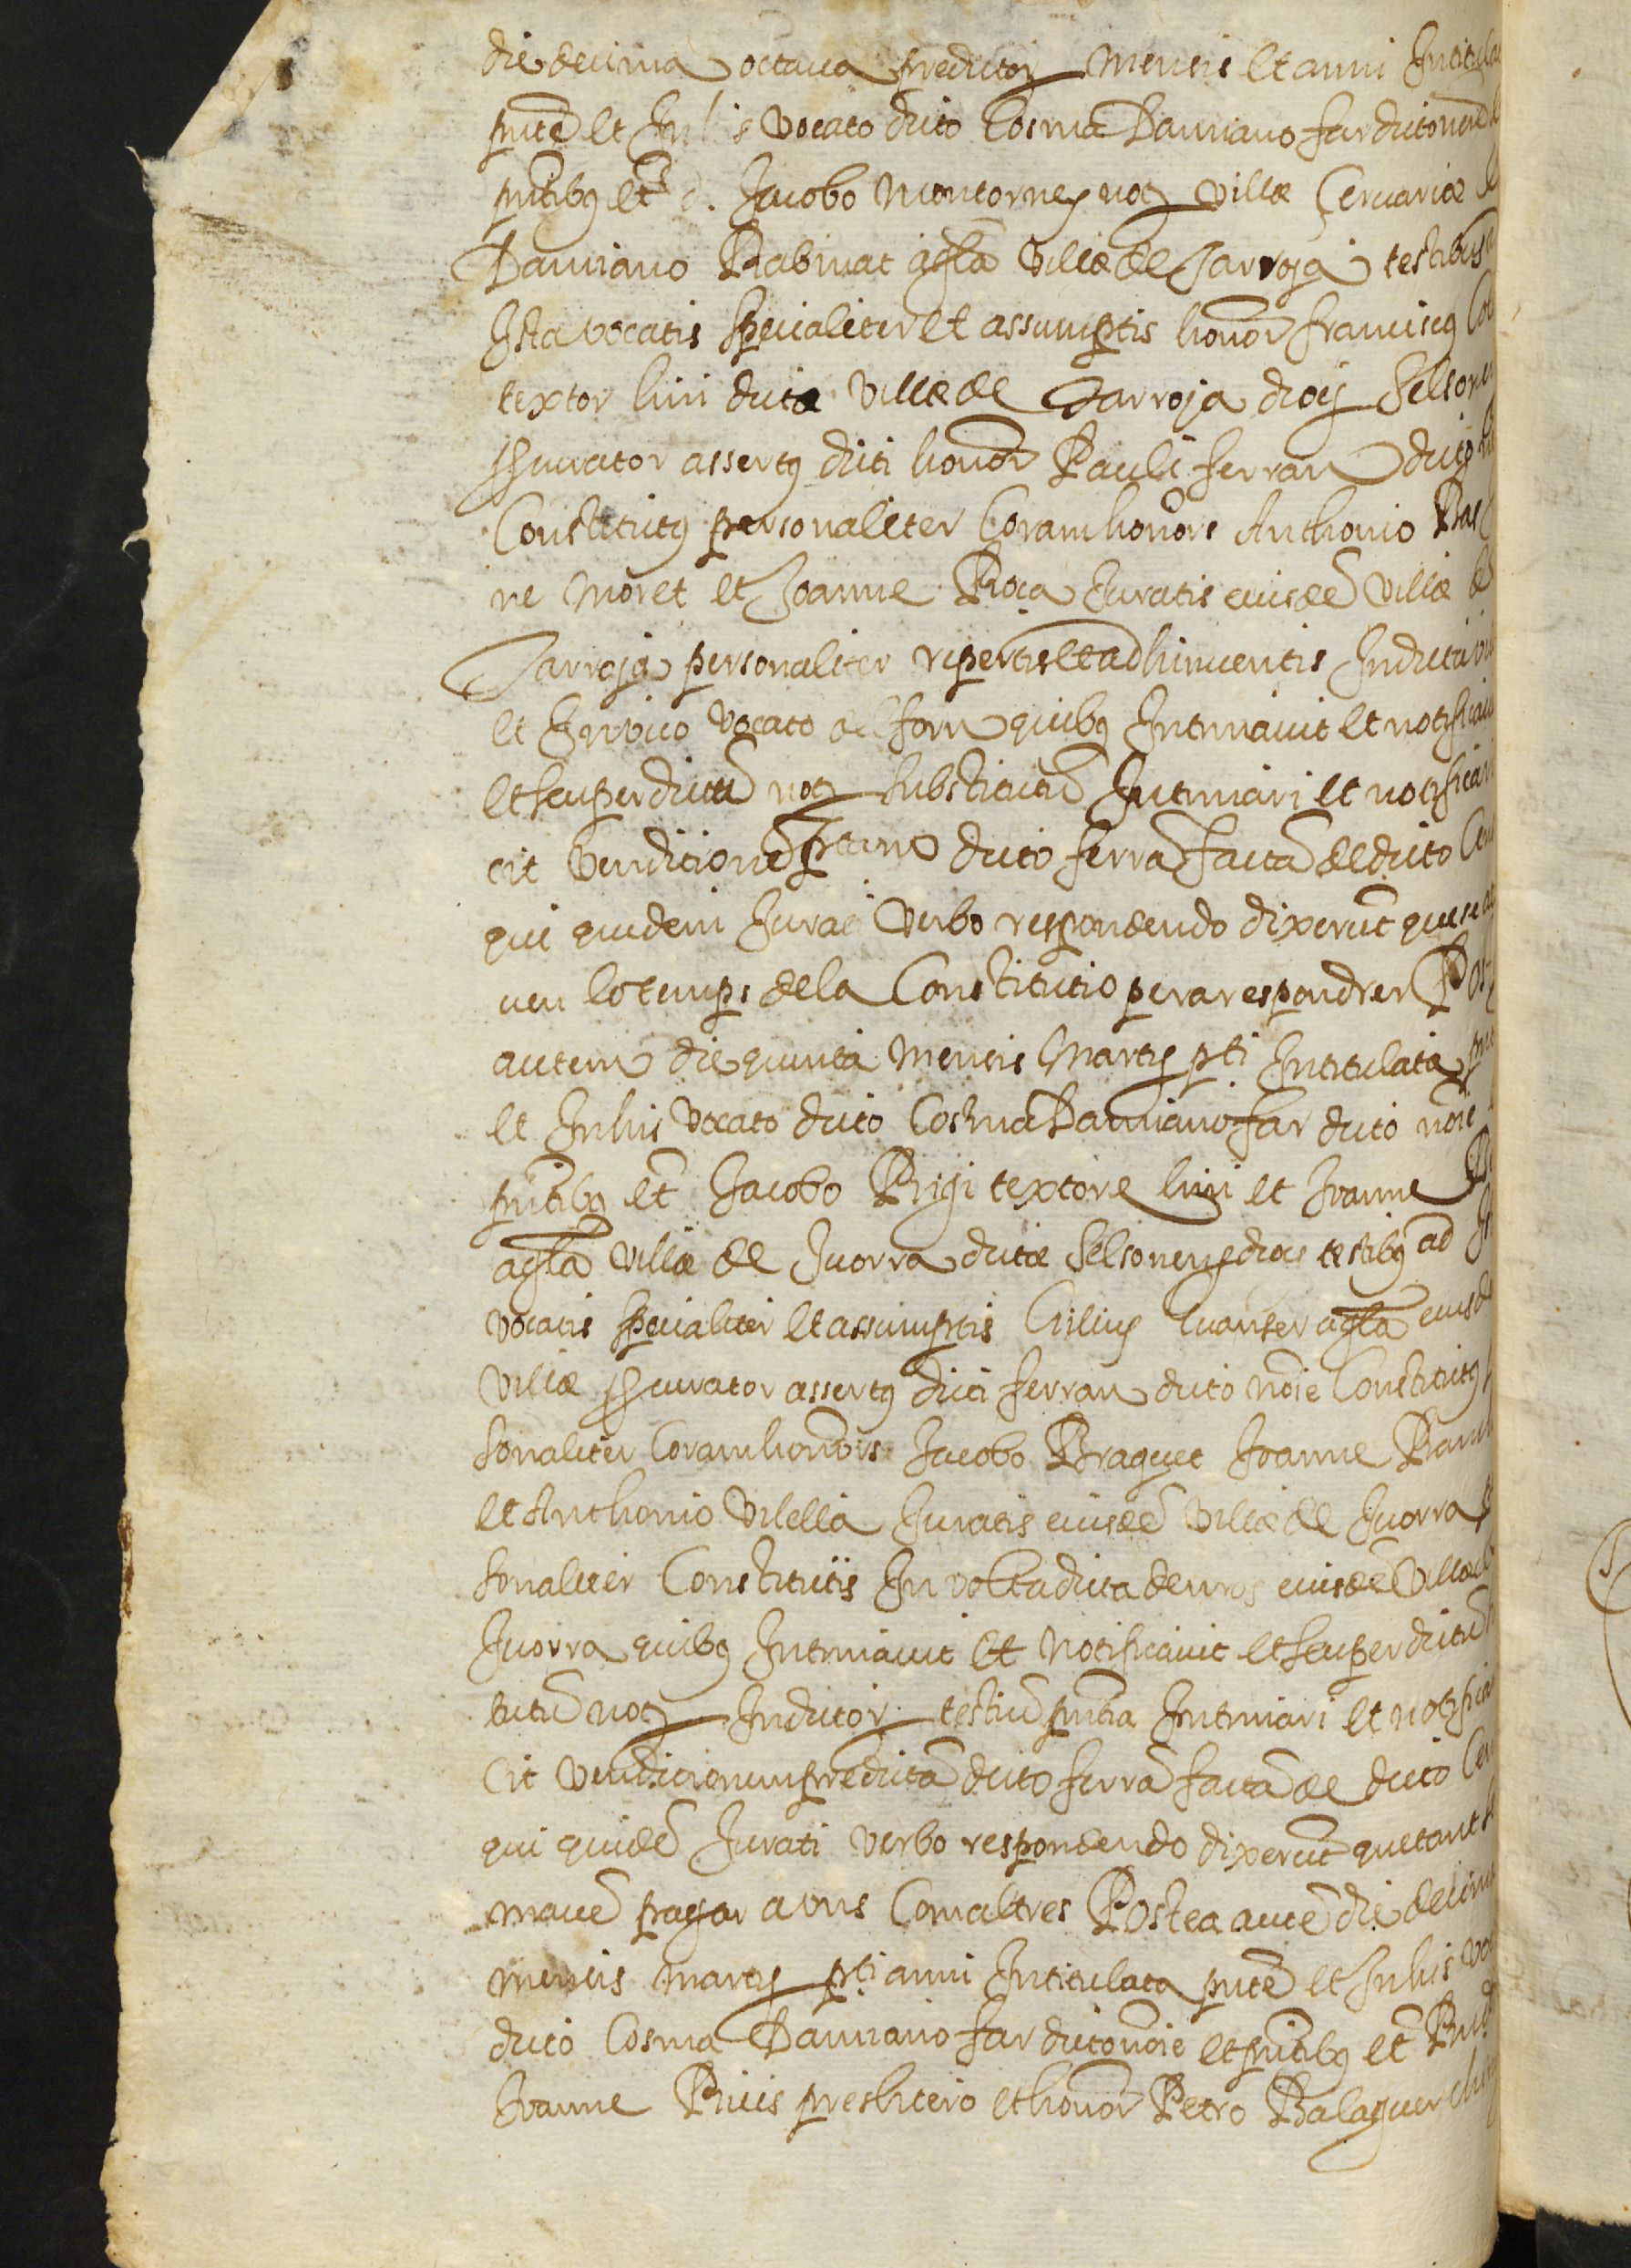 die decima octava predictor mensis et anni Intitula
pnte et In his vocato dicto Cosma Damiano far dicto noie
pntibus et Jacobo montorney not villæ Cervariæ
Damiano Rabinat agla villæ de Tarroja testibus
Ista vocatis specialiter et assumptis honor franciscus
textor lini dictæ villæ de Tarroja diocis Selson
procurator assertus dicti honor Pauli ferran dicto
Constitutus personaliter Coram honors Anthonio Bas
re moret et Joanne Roca Juratis eiusde villæ de
Tarroja personaliter repertis et adhinventis In dicta vi
et In vico vocato del forn quibus Intimavit et notifica
et seu per dictu not substitutu Intimari et notificari
cit venditione dicto ferra facta de dicto Cen
qui quidem Jurati verbo respondendo dixerut que se
ven lo temps de la Constitutio pera respondrer Pos
autem die quinta mensis Martij pti Intitulata
et In his vocato dicto Cosma Damiano far dicto noie
pntibus et Jacobo Rigi textore lini et Joanne
agla villæ de Jvorra dictæ Selsonens diocis testibus ad
vocatis specialiter et assumptis Guanter agla eiusd
villæ procurator assertus dicti ferran dicto noie Constitutus
sonaliter Coram honors Jacobo Braquet Joanne
et Anthonio Vilella Juratis eiusde villæ de Jvorra
sonaliter Constitutis In volta dicta den ros eiusde villæ
Jvorra quibus Intimavit et notificavit et seu per dictu
tutu not In dictor testiu pntia Intimari et notifica
cit venditionem predicta dicto ferra facta de dicto Cen
qui quide Jurati verbo respondendo dixerut que tant
mave pagar a uns Com altres Postea aute die decim
mensis martij pti anni Intitulata pnte et In his vo
dicto Cosma Damiano far dicto noie et pntibus et
Joanne Rius presbitero et honor Petro Balaguer